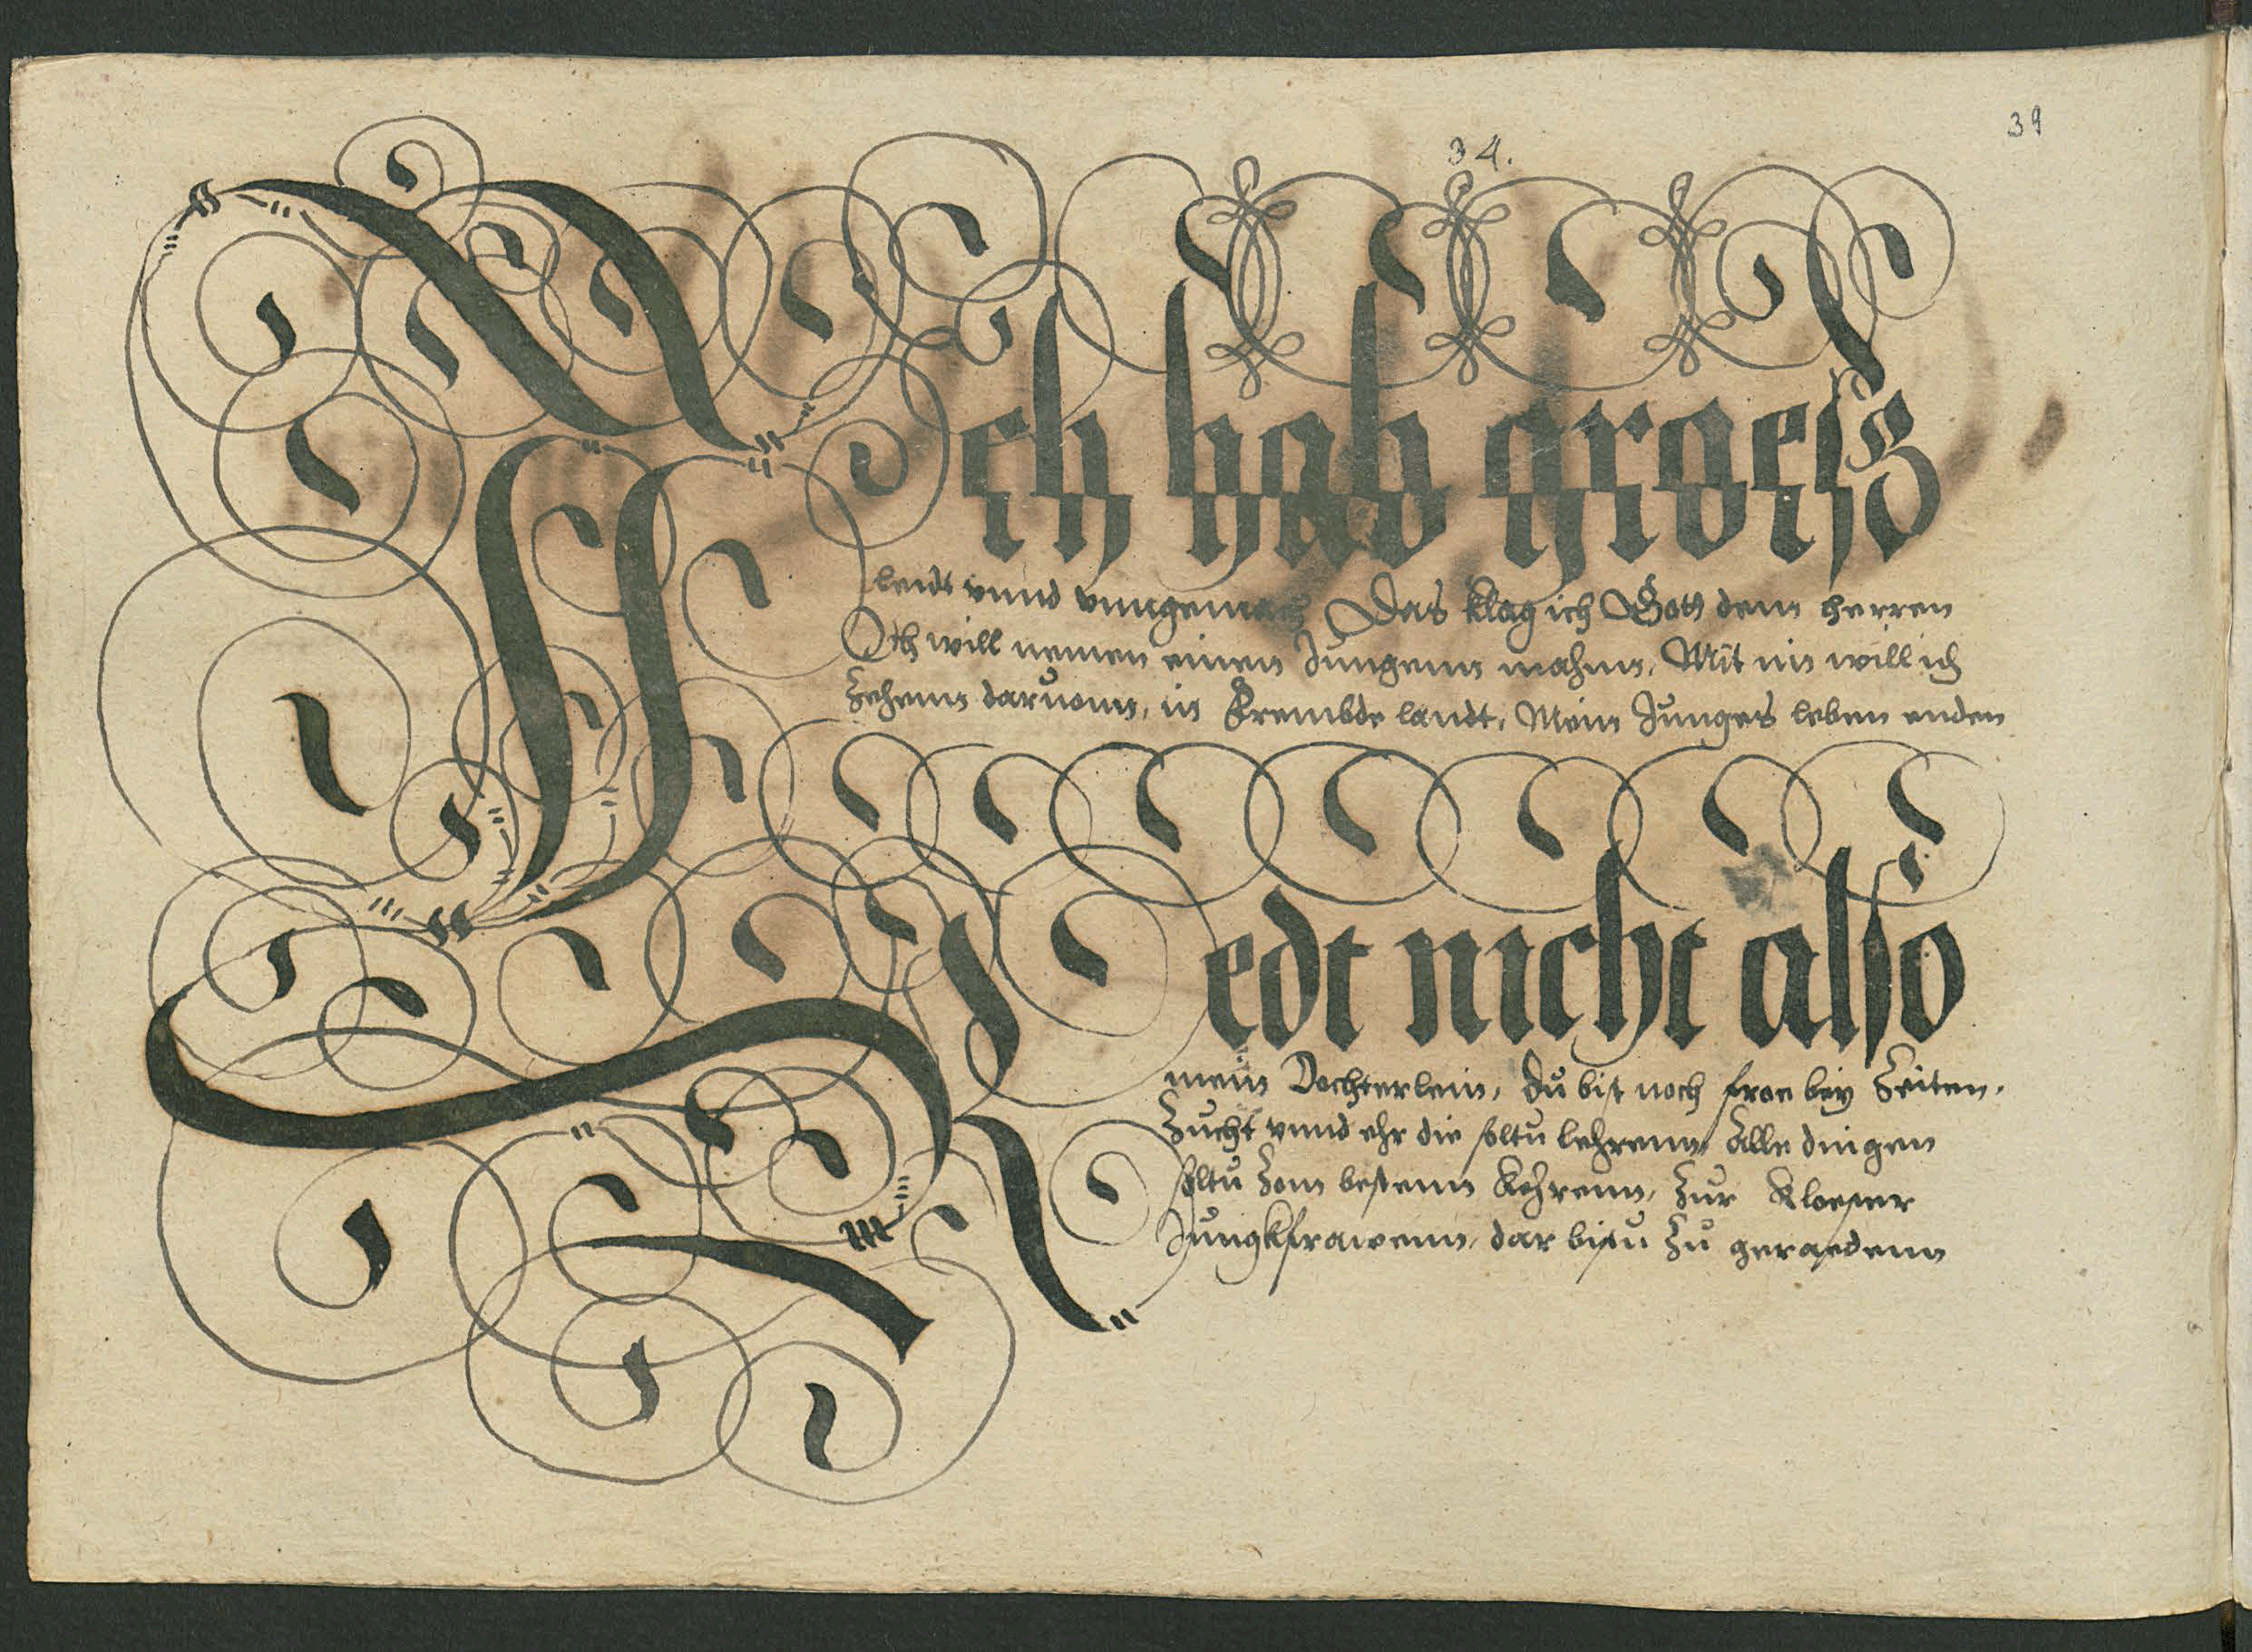 39
34.
Ich hab groeß
leidt vnnd vnngemach Das klag ich Gott dem herren
Ich will nemen einen Jungenn mahnn, Mit im will ich
Zehenn daruonn, in Frembde landt, Mein Junges leben enden
Redt nicht also
mein Dochterlein, du bist noch froe bey Zeiten,
Zucht vnnd ehr die soltu lehrenn, Alle dingen
soltu Zom bestenn Kehrenn, Zur Kloester
Jungkfrawenn, dar bistu Zu geraedenn